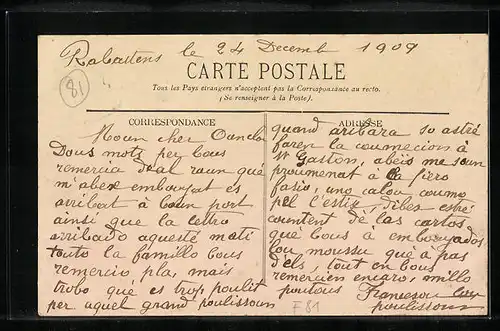 Rabastens le 24 Decemb 1909
81
CARTE POSTALE
Tous les Pays étrangers n'acceptent pas la Correspondance au recto.
(Se renseigner à la Poste).
CORRESPONDANCE
Moun cher Ouncle
Dous mots per bous
remercia dal raun qué
m'abes embouyat es
arribat à boun port
ainsi que la lettro
arribado aquesté mati
touto la famillo bous
remercio pla, mais
trobo qué es trop poulit
per aquel grand poulissoun
ADRESSE
quand aribara so astré
faren la coumecions à
Gaston, abeis me soun
proumenat à la fiero
fasio, uno calou coumo
pel l'estiu, dibes estré
countent dé las cartos
qué bous à embouyados
lou moussu que à pas
d'els, tout en bous
remercien encaro, millo
poutous Francesou lou
poulissoun
F 81